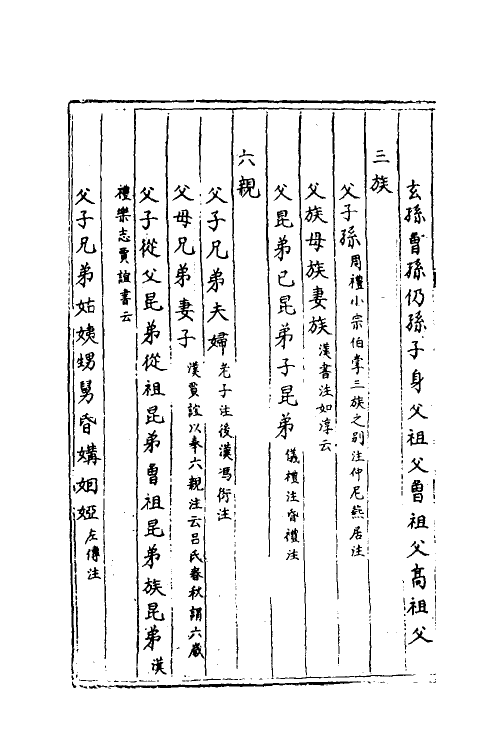 玄孫曾孫仍孫子身父祖父曾祖父高祖父
三族
父子孫周禮小宗伯掌三族之別注仲尼燕居注
父族母族妻族漢書注如淳云
父昆弟己昆弟子昆弟儀禮注昏禮注
六親
父子兄弟夫婦老子注後漢馮衍注
父母兄弟妻子漢賈誼以奉六親注云呂氏春秋謂六戚
父子從父昆弟從祖昆弟曾祖昆弟族昆弟漢
禮樂志賈誼書云
父子兄弟姑姨甥舅昏媾姻婭左傳注